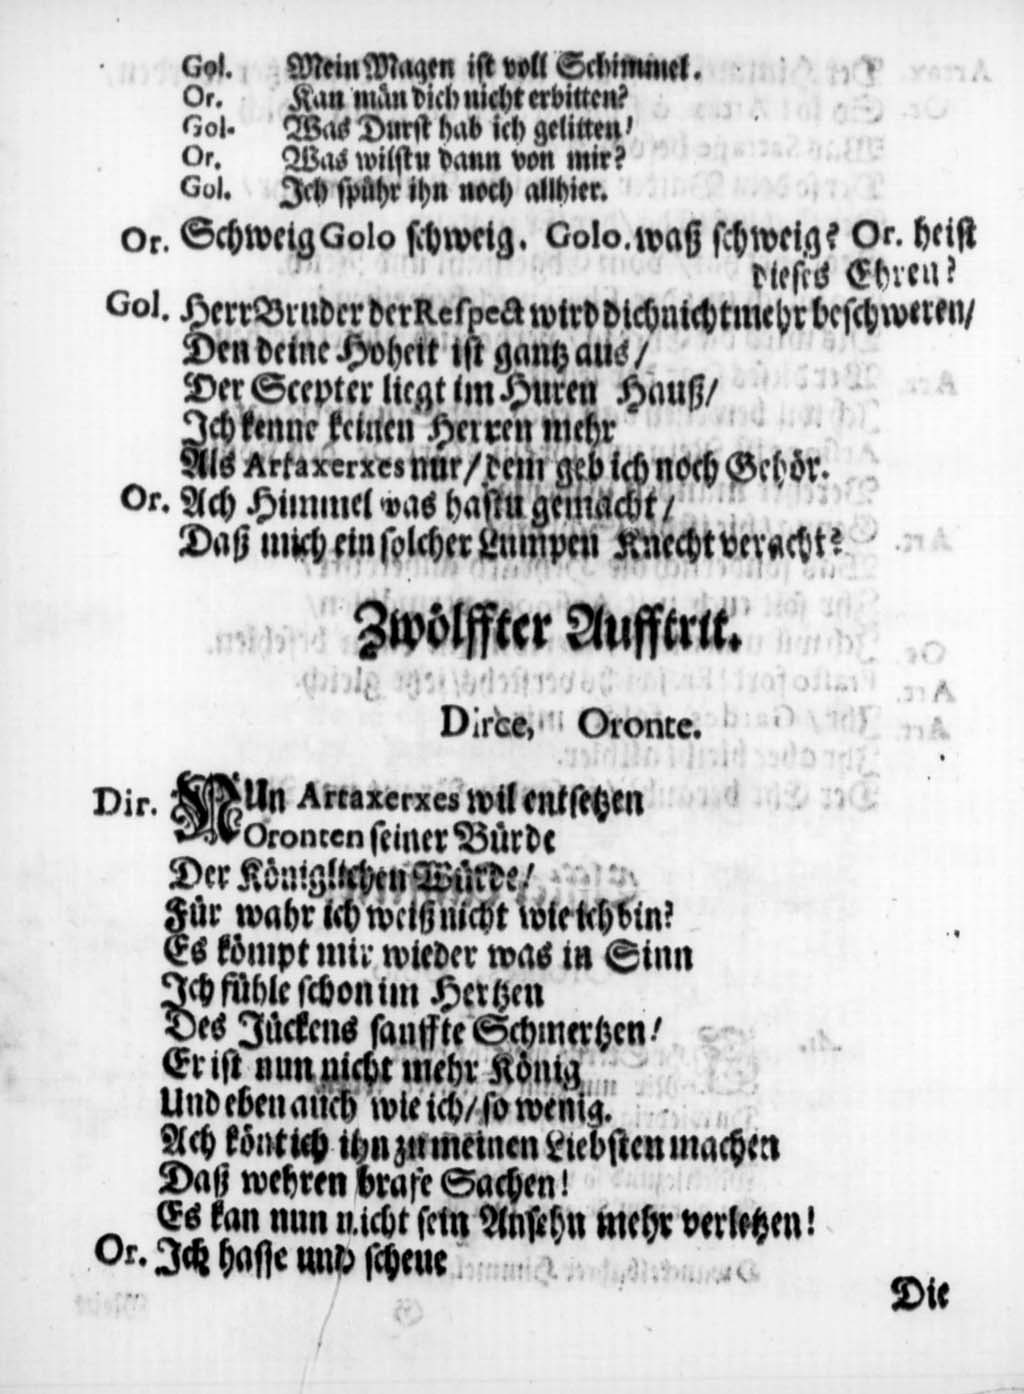 Gol. Mein Magen ist voll Schimmel.
Or. Kan man dich nicht erbitten?
Gol. Was Durst hab ich gelitten!
Or. Was wilstu dann von mir?
Gol. Ich spühr ihn noch allhier.
Or. Schweig Golo schweig. Golo. waß schweig? Or. heist
dieses Ehren?
Gol. Herr Bruder der Respect wird dich nicht mehr beschweren/
Den deine Hoheit ist gantz aus/
Der Scepter liegt im Huren Hauß/
Ich kenne keinen Herren mehr
Als Artaxerxes nur/ dem geb ich noch Gehör.
Or. Ach Himmel was hastu gemacht/
Daß mich ein solcher Lumpen Knecht veracht?
Zwölffter Aufftrit.
Dirce, Oronte.
Dir. NUn Artaxerxes wil entsetzen
Oronten seiner Bürde
Der Königlichen Würde/
Für wahr ich weiß nicht wie ich bin?
Es kömpt mir wieder was in Sinn
Ich fühle schon im Hertzen
Des Jückens sanffte Schmertzen!
Er ist nun nicht mehr König
Und eben auch wie ich/ so wenig.
Ach könt ich ihn zu meinen Liebsten machen
Daß wehren brafe Sachen!
Es kan nun nicht sein Ansehn mehr verletzen!
Or. Ich hasse und scheue
Die